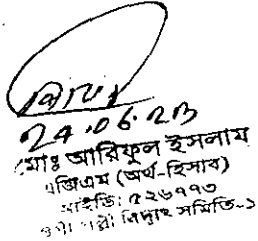 24.06.23
মোঃ আরিফুল ইসলাম
এজিএম (অর্থ-হিসাব)
আইডি: ৫২৬৭৭৩
পল্লী বিদ্যুৎ সমিতি-১